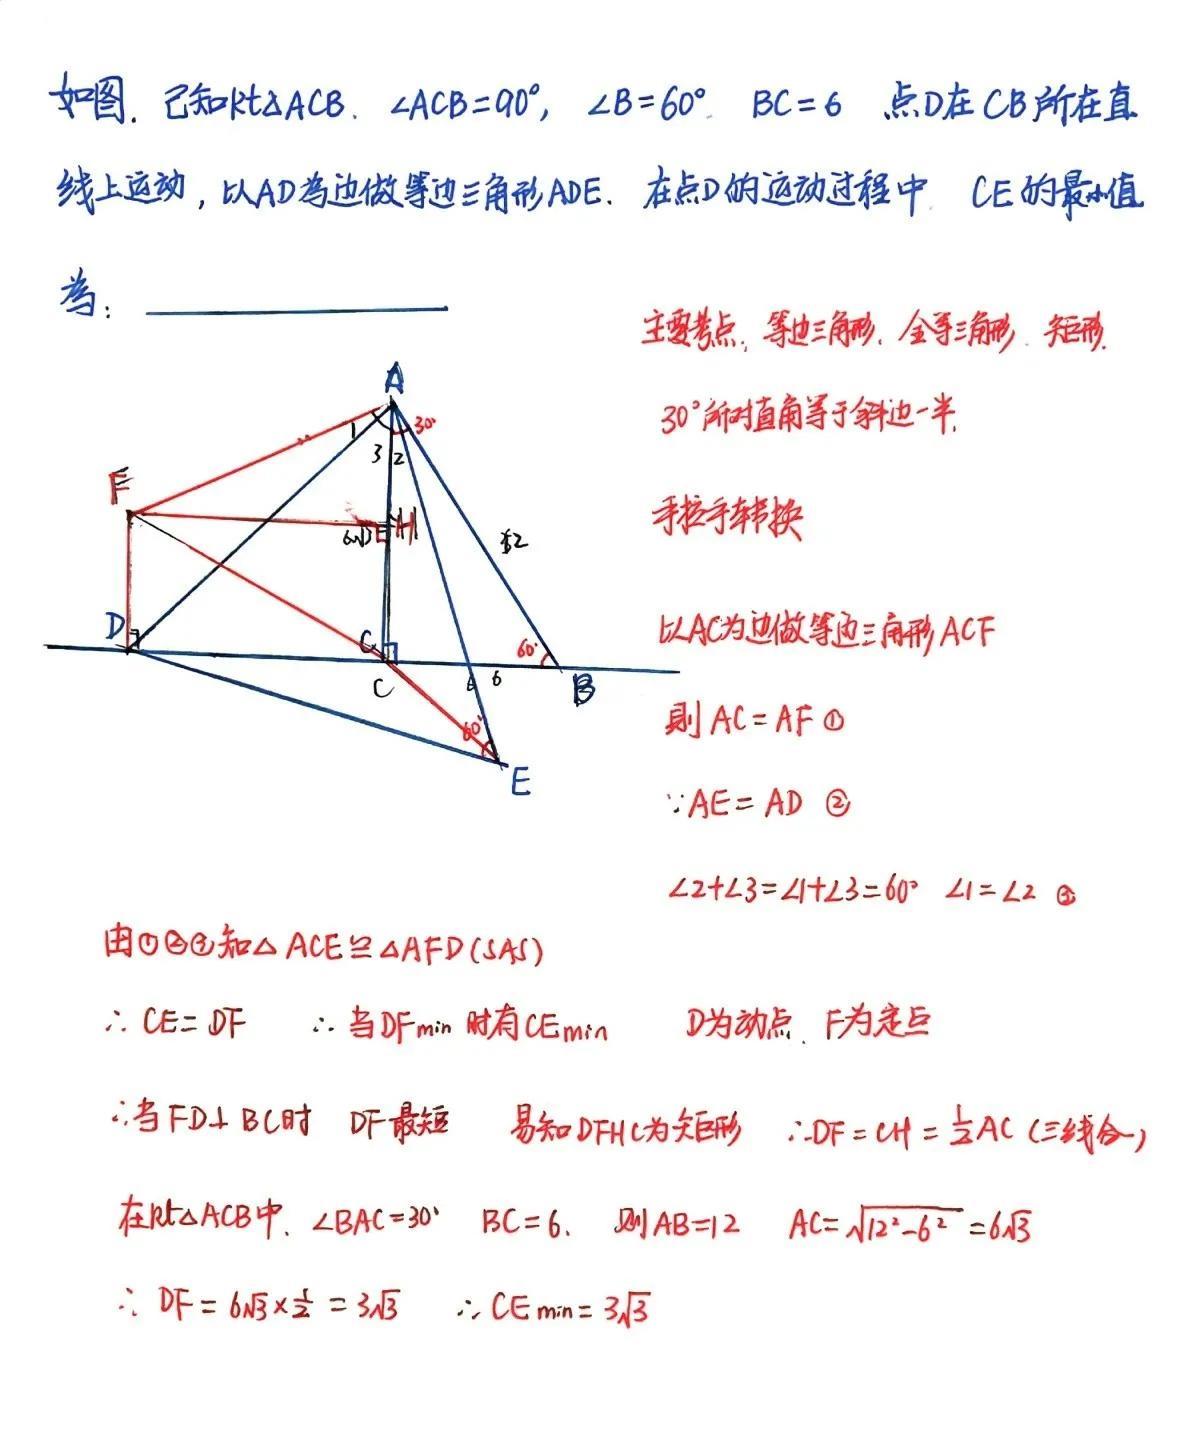 如图. 已知Rt△ACB. ∠ACB=90°, ∠B=60°. BC=6 点D在CB所在直
线上运动, 以AD為边做等边三角形ADE. 在点D的运动过程中. CE的最小值
為:
主要考点: 等边三角形. 全等三角形. 矩形.
30°所对直角等于斜边一半.
手拉手转换
A
30°
1
3
2
F
H
6√3
12
D
C
60°
C
6
6
B
60°
E
以AC为边做等边三角形ACF
则 AC=AF ①
∵AE=AD ②
∠2+∠3=∠1+∠3=60° ∠1=∠2 ③
由①②③知△ACE≌△AFD(SAS)
∴ CE=DF ∴ 当DFmin 时有CEmin D为动点. F为定点
∴当FD⊥BC时 DF最短 易知DFHC为矩形 ∴DF=CH=1/2AC (三线合一)
在Rt△ACB中. ∠BAC=30° BC=6. 则AB=12 AC=√12²-6² =6√3
∴ DF=6√3×1/2=3√3 ∴CE min=3√3